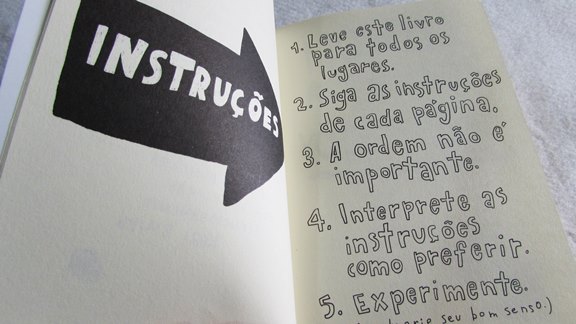 INSTRUÇÕES
1. Leve este livro
para todos os
lugares.
2. Siga as instruções
de cada página.
3. A ordem não é
importante.
4. Interprete as
instruções
como preferir.
5. Experimente.
seu bom senso.)